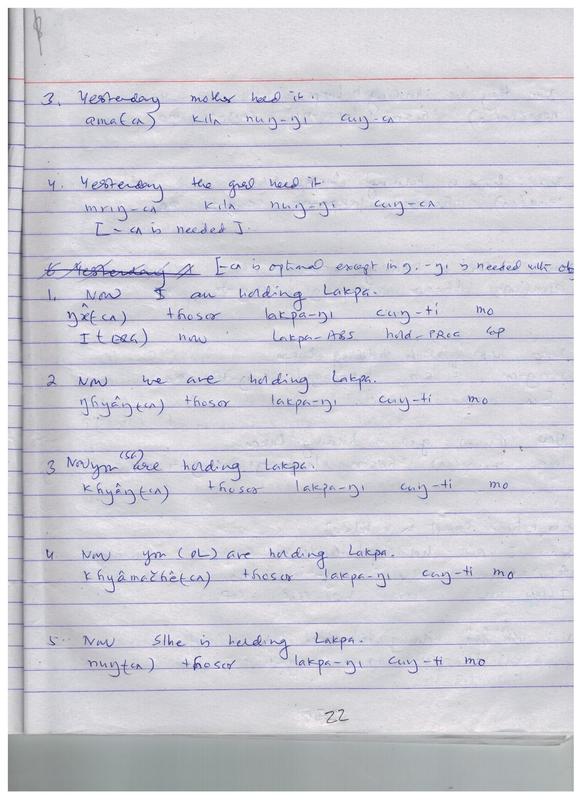 3. Yesterday mother held it.
ama(cʌ) kilʌ nuŋ-ŋi cuŋ-cʌ
4. Yesterday the girl held it.
mriŋ-cʌ kilʌ nuŋ-ŋi cuŋ-cʌ
[-cʌ is needed].
[-cʌ is optional except in 4. -ŋi is needed with obj
1. Now I am holding Lakpa.
(cʌ) thosor lakpa-ŋi cuŋ-ti mo
I+(ERG) now Lakpa-ABS hold-PROG cop
2 Now we are holding Lakpa.
ŋhyâŋ(cʌ) thosor lakpa-ŋi cuŋ-ti mo
3 Now you (SG) are holding Lakpa.
khyâŋ(cʌ) thosor lakpa-ŋi cuŋ-ti mo
4. Now you (PL) are holding Lakpa.
khyâmačhê(cʌ) thosor lakpa-ŋi cuŋ-ti mo
5. Now S/he is holding Lakpa.
nuŋ(cʌ) thosor lakpa-ŋi cuŋ-ti mo
22